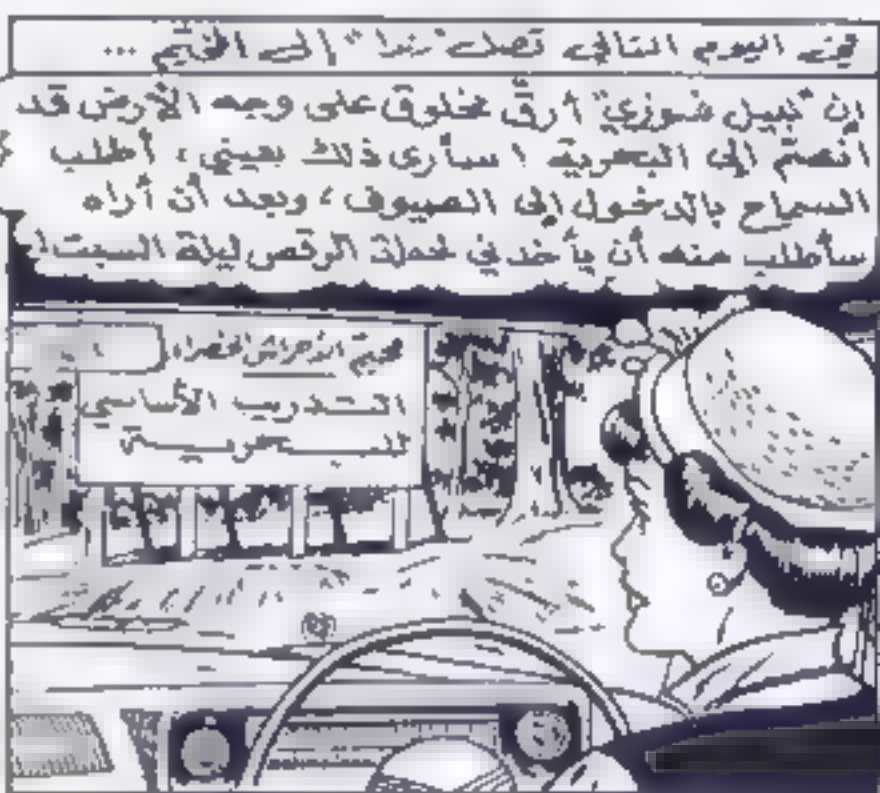 في اليوم التالي تصل "رندا" إلى المخيم ...
إن "نبيل فوزي" أرق مخلوق على وجه الأرض قد
انضم إلى البحرية ! سأرى ذلك بعيني ، أطلب
السماح بالدخول إلى الضيوف ، وبعد أن أراه
سأطلب منه أن يأخذني لحفلة الرقص ليلة السبت !
مخيم الأحراش الخضراء
التدريب الأساسي
للبحرية